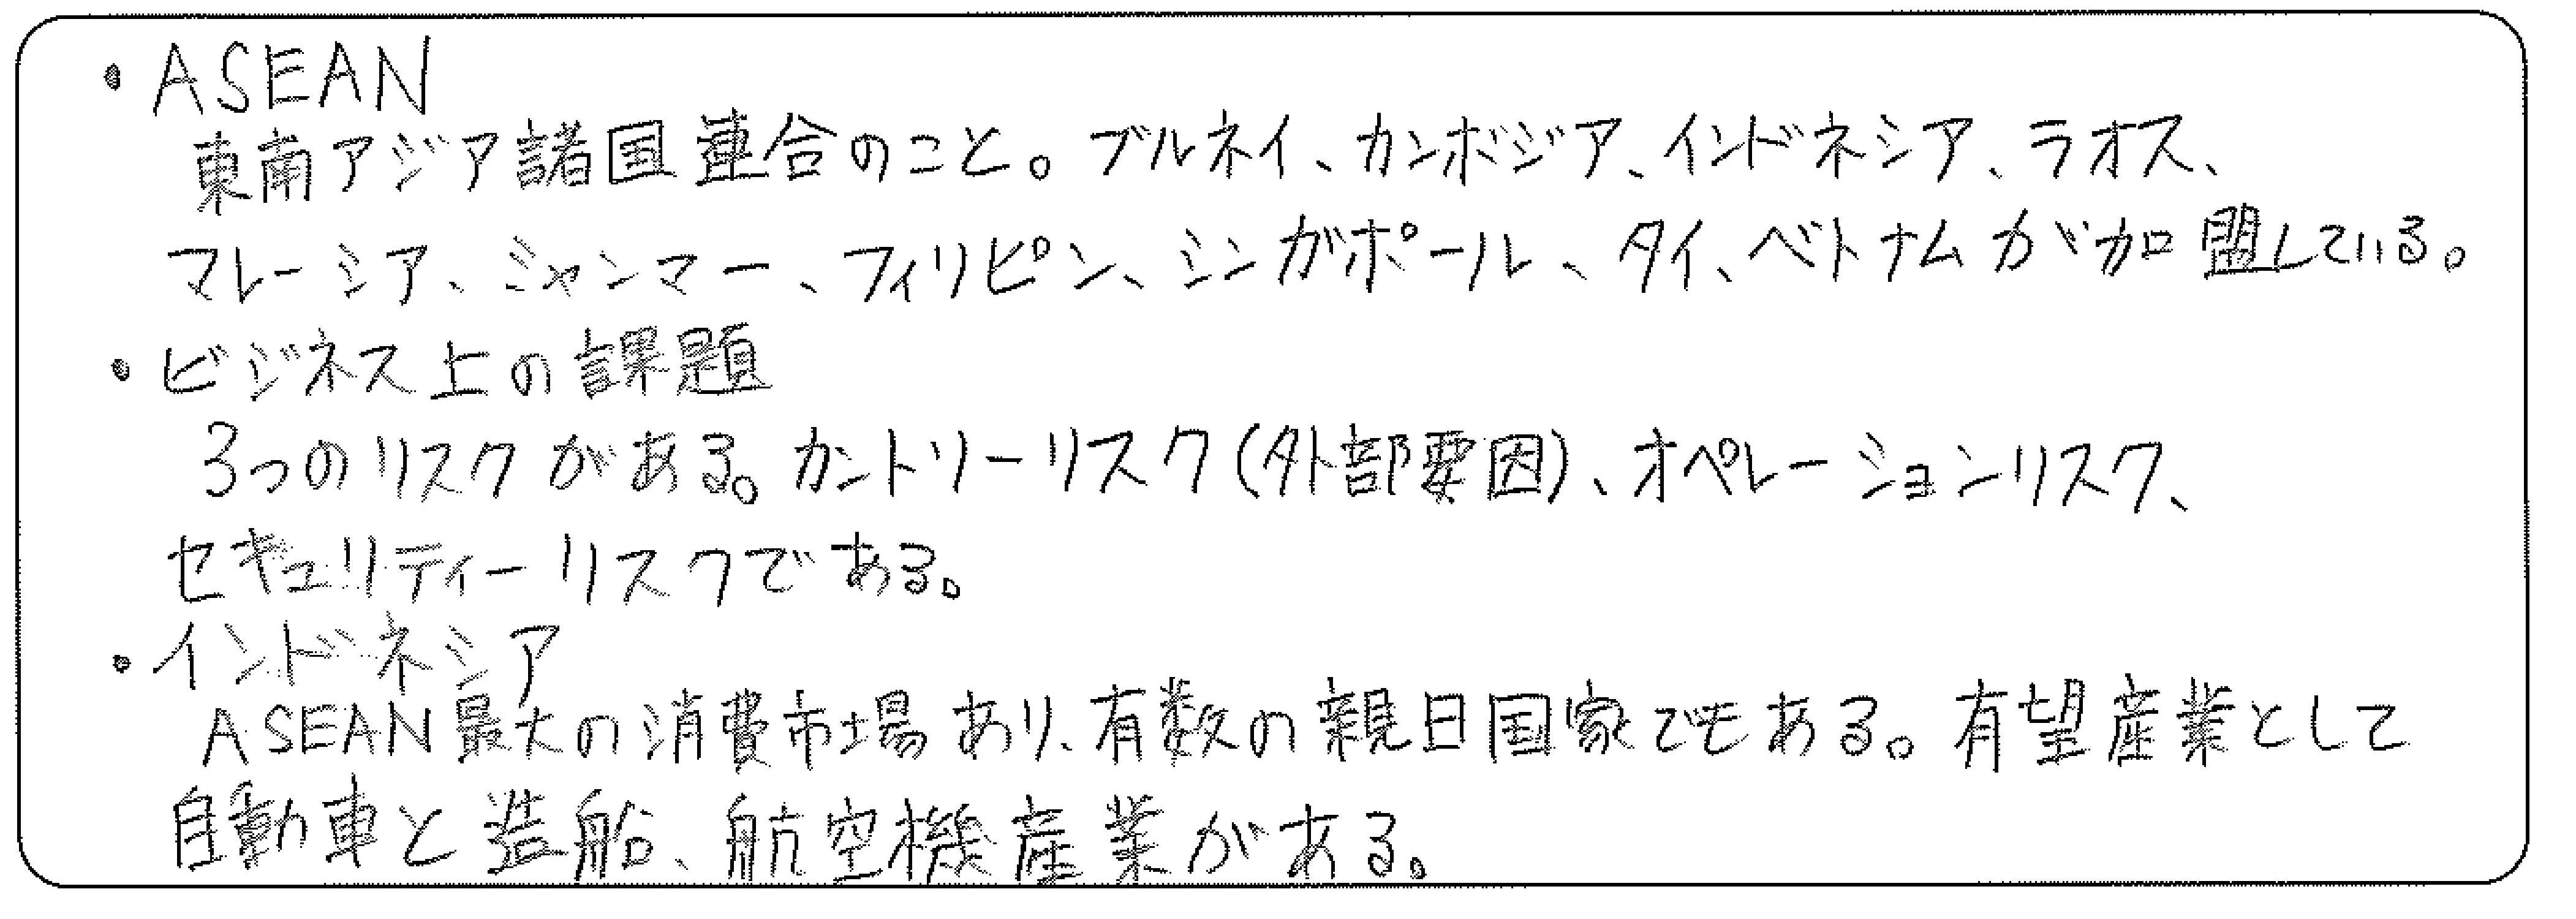 ・ASEAN
東南アジア諸国連合のこと。ブルネイ、カンボジア、インドネシア、ラオス、
マレーシア、ミャンマー、フィリピン、シンガポール、タイ、ベトナムが加盟している。
・ビジネス上の課題
3つのリスクがある。カントリーリスク(外部要因)、オペレーションリスク、
セキュリティーリスクである。
・インドネシア
ASEAN最大の消費市場あり、有数の親日国家でもある。有望産業として
自動車と造船、航空機産業がある。